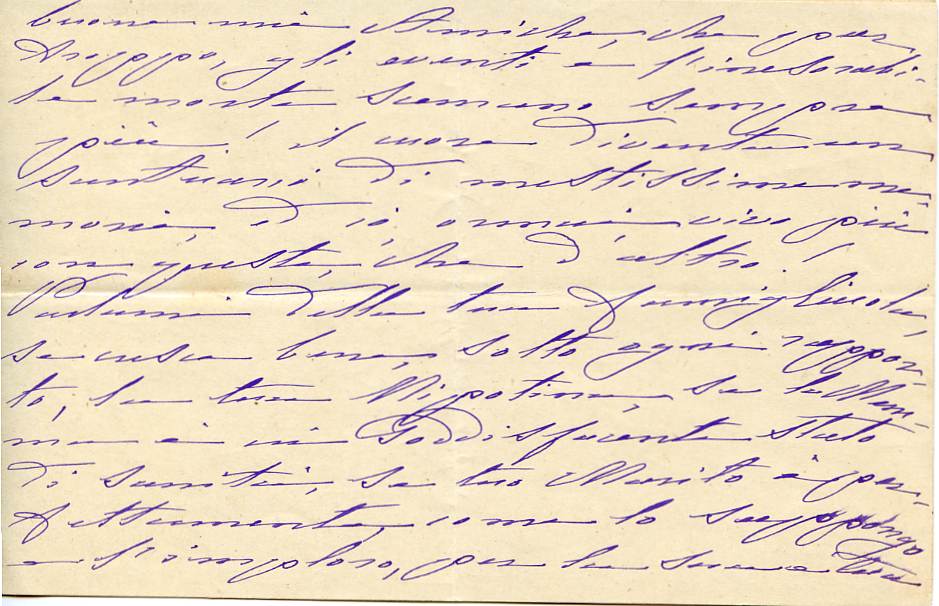 buone mie Amiche, che pur
troppo, gli eventi e l'inesorabi-
le morte scemano sempre
più! il cuore diventa un
santuario di mestissime me-
morie, ed io, ormai vivo più
con queste, che d'altro!
Parlami della tua famigliuola,
se cresce bene, sotto ogni rappor-
to, la tua Nipotina, se la Mam-
ma è in soddisfacente stato
di sanità, se tuo Marito è per-
fettamente, come lo suppongo
e l'imploro, per la sua e tua